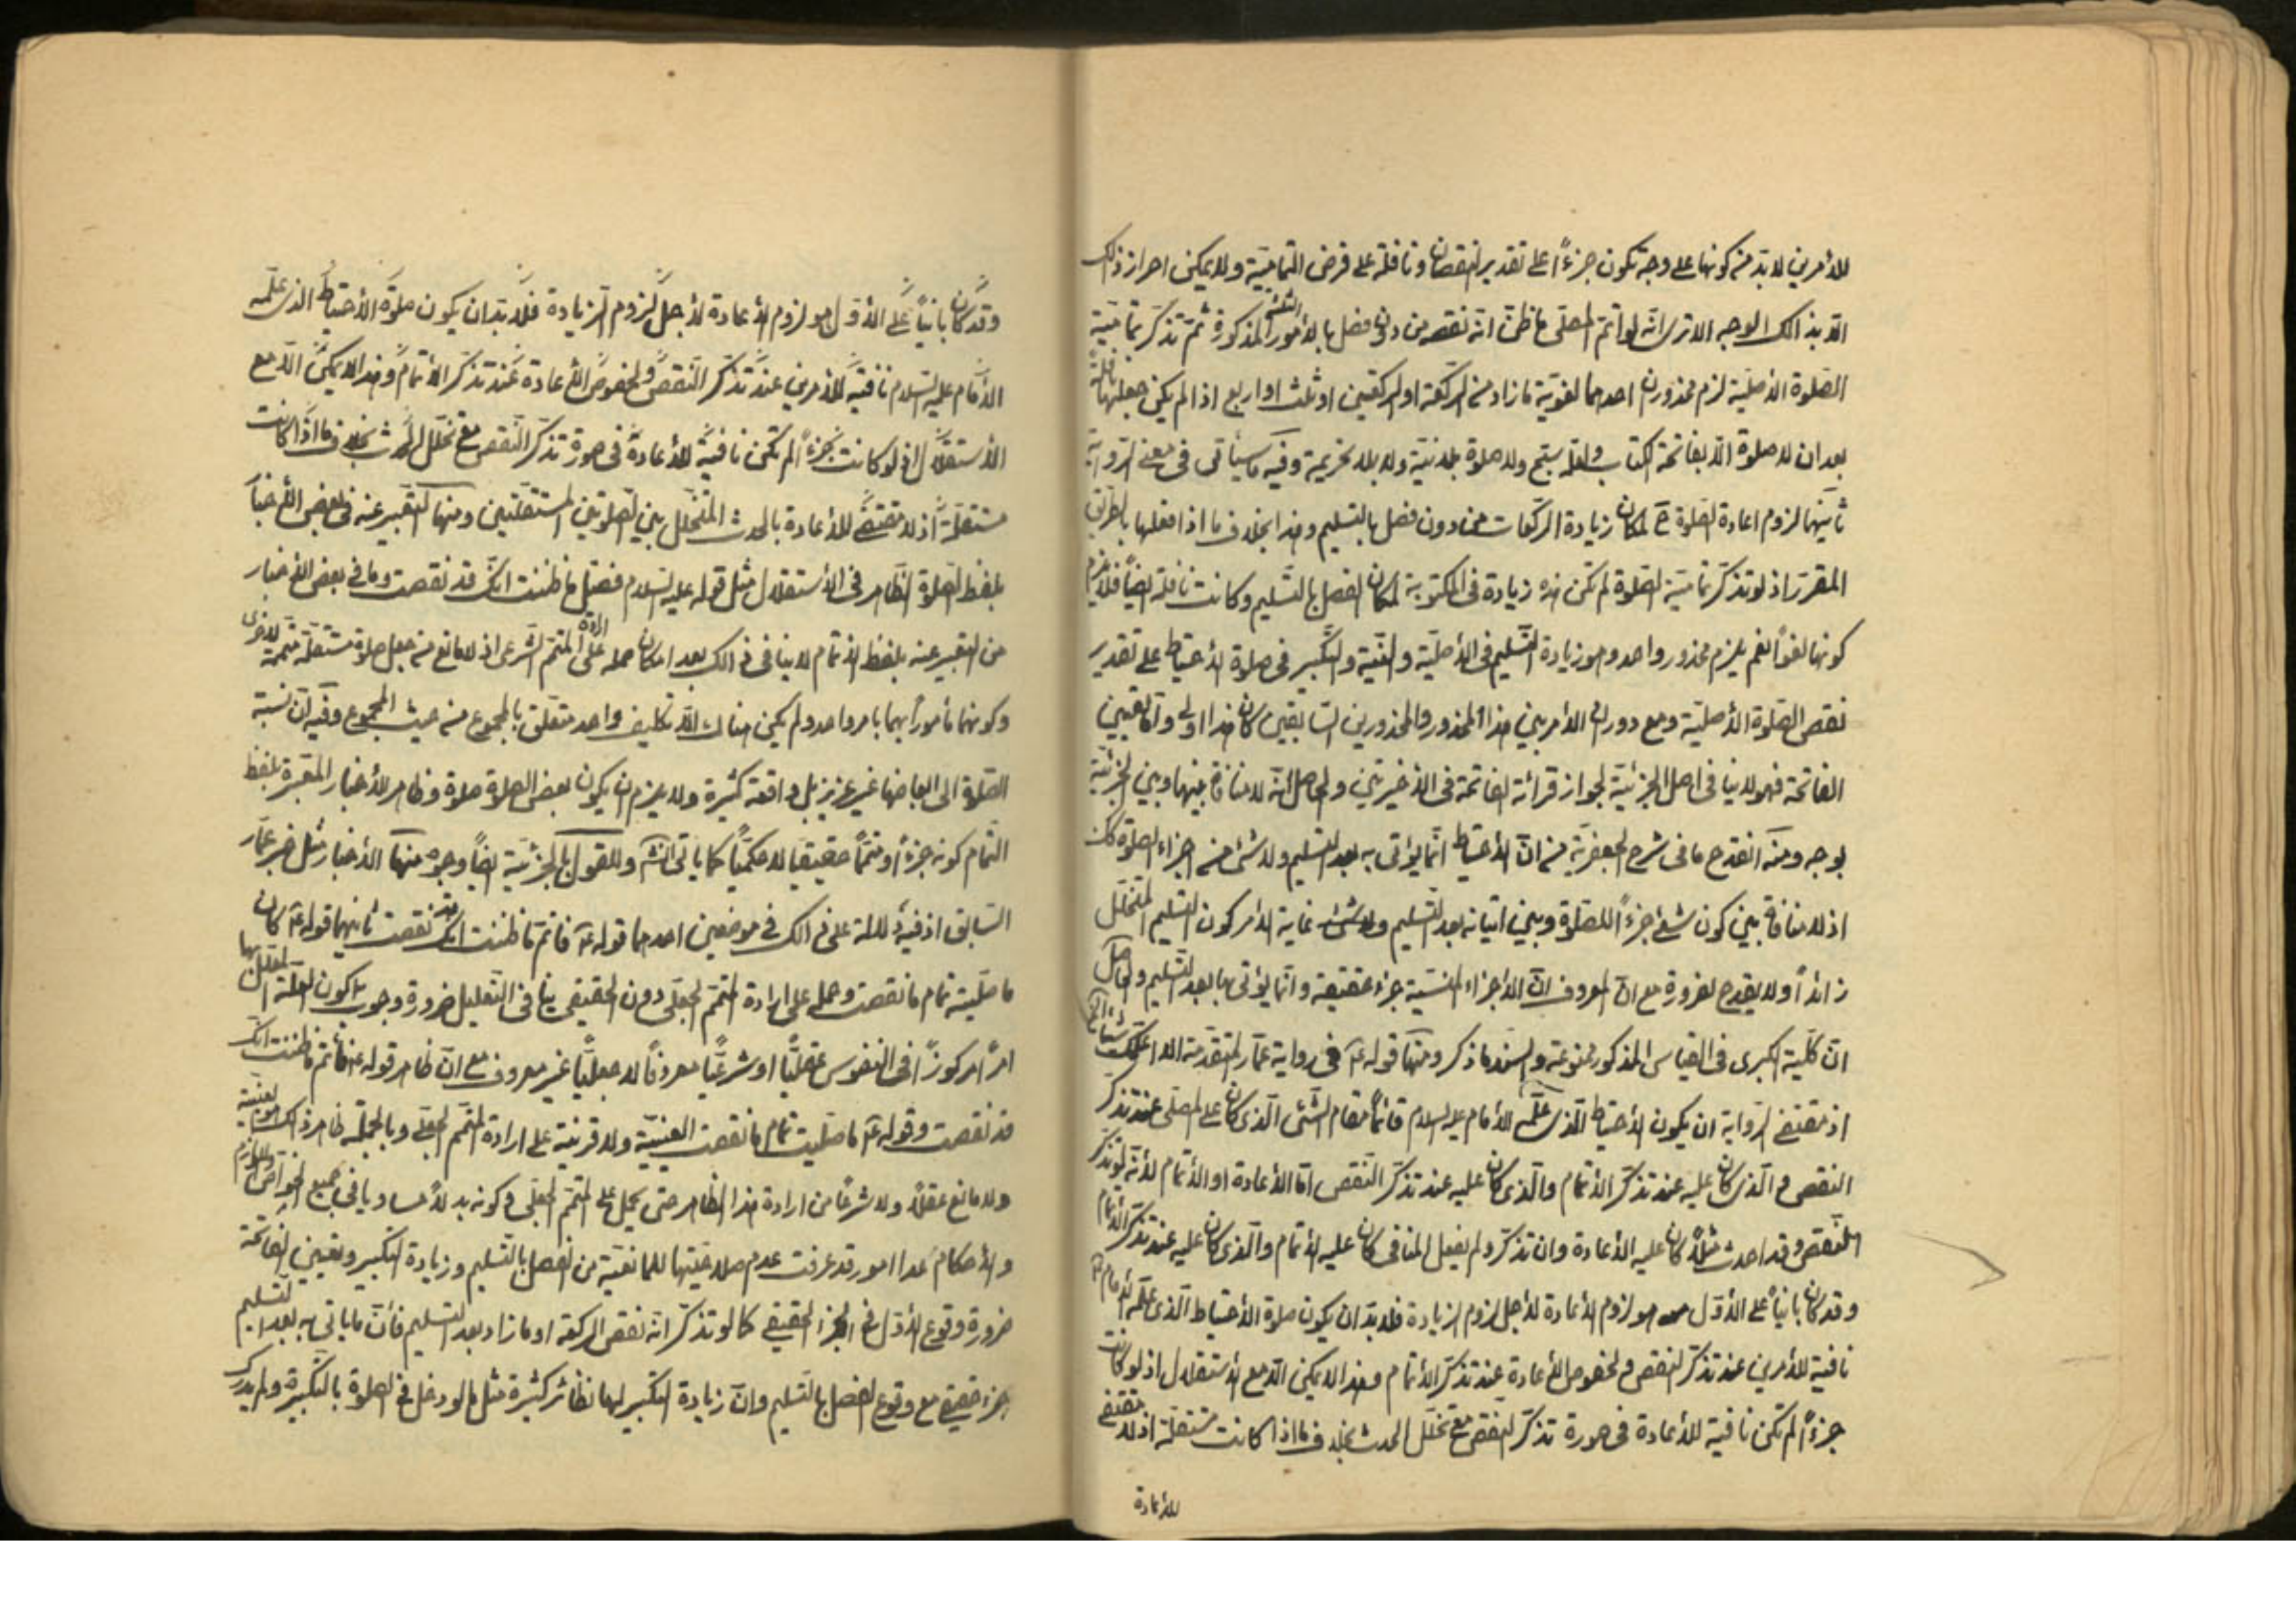 للأمرين لا بد من كونها على وجه تكون جزءاً على تقدير النقصان ونافلة على فرض التمامية ولا يمكن احراز ذالك
الا بذالك الوجه الا ترى انه لو اتم المصلى ما ظن انه نقصه من دون فصل بالأمور الثلثة المذكورة ثم تذكر تمامية
الصلوة الأصلية لزم محذوران احدهما لغوية ما زاد من الركعة او الركعتين او ثلث او اربع اذا لم يكن جعلها نافلة
بعد ان لا صلوة الا بفاتحة الكتاب ولعله يتبع ولا صلوة بلا نية ولا بلا تحريمة وفيه ما سيأتى فى معنى الرواية
ثانيهما لزوم اعادة الصلوة ح لمكان زيادة الركعات من دون فصل بالتسليم وهذا بخلاف ما اذا فعلها بالطريق
المقرر اذ لو تذكر تمامية الصلوة لم تكن هذه زيادة فى المكتوبة لمكان الفصل بالتسليم وكانت نافلة ايضاً فلا يلزم
كونها لغواً نعم يلزم محذور واحد وهو زيادة التسليم فى الأصلية والنية والتكبير فى صلوة الأحتياط على تقدير
نقص الصلوة الأصلية ومع دوران الأمر بين هذا المحذور والمحذورين السابقين كان هذا اولى واما تعيين
الفاتحة فهو لا ينافى اصل الجزئية لجواز قرائة الفاتحة فى الأخيرتين والحاصل انه لا منافاة بينها وبين الجزئية
بوجه ومنه انقدح ما فى شرح الجعفرية من ان الأحتياط انما يؤتى به بعد التسليم ولا شئ من اجزاء الصلوة كك
اذ لا منافاة بين كون شئ جزءاً للصلوة وبين اتيانه بعد التسليم ولا شئ غاية الأمر كون التسليم المتخلل
زائداً ولا يقدح لضرورة مع ان المعروف ان الأجزاء المنسية جزء حقيقة وانما يؤتى بها بعد التسليم والحاصل
ان كلية الكبرى فى القياس المذكور ممنوعة والسند ما ذكر ومنها قوله ع فى رواية عمار المتقدمة الا اعلمك شيئا الخ
اذ مقتضى الرواية ان يكون الأحتياط الذى علمه الأمام عليه السلام قائماً مقام الشئ الذى كان على المصلى عند تذكر
النقص والذى كان عليه عند تذكر الأتمام والذى كان عليه عند تذكر النقص اما الأعادة او الأتمام لأنه لو تذكر
النقص وقد احدث مثلاً كان عليه الأعادة وان تذكر ولم يفعل المنافى كان عليه الأتمام والذى كان عليه عند تذكر الأتمام
وقد كان بانياً على الأول هو لزوم الأعادة لأجل لزوم الزيادة فلا بد ان يكون صلوة الأحتياط الذى علمه الأمام ع
نافية للأمرين عند تذكر النقص ولخصوص الأعادة عند تذكر الأتمام وهذا لا يمكن الا مع الأستقلال اذ لو كانت
جزءاً لم تكن نافية للأعادة فى صورة تذكر النقص مع تخلل الحدث بخلاف ما اذا كانت مستقلة اذ لا مقتضى
للأعادة
وقد كان بانياً على الأول هو لزوم الأعادة لأجل لزوم الزيادة فلا بد ان يكون صلوة الأحتياط الذى علمه
الأمام عليه السلام نافية للأمرين عند تذكر النقص ولخصوص الأعادة عند تذكر الأتمام وهذا لا يمكن الا مع
الأستقلال اذ لو كانت جزءاً لم تكن نافية للأعادة فى صورة تذكر النقص مع تخلل الحدث بخلاف ما اذا كانت
مستقلة اذ لا مقتضى للأعادة بالحدث المتخلل بين الصلوتين المستقلتين ومنها التعبير عنه فى بعض الأخبار
بلفظ الصلوة الظاهر فى الأستقلال مثل قوله عليه السلام فصل ما ظننت انك قد نقصت وما فى بعض الأخبار
من التعبير عنه بلفظ الأتمام لا ينافى ذالك بعد امكان حمله على ارادة المتمم الشرعى اذ لا مانع من جعل صلوة مستقلة متممة للأخرى
وكونهما مأموراً بهما بامر واحد ولم يكن هناك الا تكليف واحد متعلق بالمجموع من حيث المجموع وفيه ان نسبة
الصلوة الى ابعاضها غير عزيز بل واقعة كثيرة ولا يلزم ان يكون بعض الصلوة صلوة وظاهر الأخبار المعبرة بلفظ
التمام كونه جزءاً ومتمماً حقيقياً لا حكمياً كما ياتى انشاء وللقول بالجزئية ايضاً وجوه منها الأخبار مثل خبر عمار
السابق اذ فيه دلالة على ذالك فى موضعين احدهما قوله ع فاتم ما ظننت انك قد نقصت ثانيهما قوله ع كان
ما صليته تمام ما نقصت وحمله على ارادة المتمم الجعلى دون الحقيقى ينافى التعليل ضرورة وجوب كون العلة المعلل بها
امراً مركوزاً فى النفوس عقلياً او شرعياً معروفاً لا جعلياً غير معروف مع ان ظاهر قوله ع فاتم ما ظننت انك
قد نقصت وقوله ع ما صليت تمام ما نقصت العينية ولا قرينة على ارادة المتمم الجعلى وبالجملة ظاهر ذالك هو العينية
ولا مانع عقلاً ولا شرعاً من ارادة هذا الظاهر حتى يحمل على المتمم الجعلى وكونه بدلاً مساوياً فى جميع الخواص واللوازم
والأحكام عدا امور قد عرفت عدم صلاحيتها للمانعية من الفصل بالتسليم وزيادة التكبير وتعيين الفاتحة
ضرورة وقوع الأول فى الجزء الحقيقى كما لو تذكر انه نقص الركعة او ما زاد بعد التسليم فأن ما ياتى به بعد التسليم
جزء حقيقى مع وقوع الفصل بالتسليم وان زيادة التكبير لها نظائر كثيرة مثل ما لو دخل فى الصلوة بالتكبيرة ولم يدرك